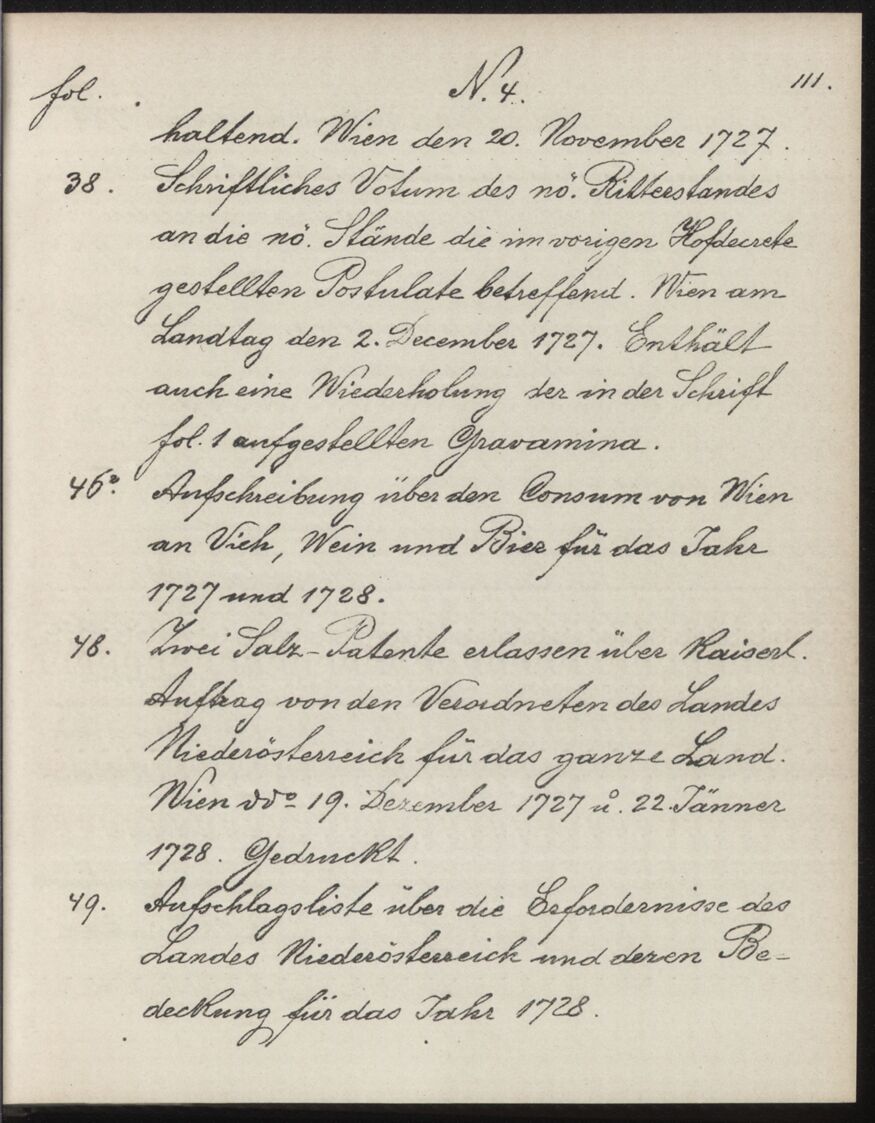 fol. N. 4. 111.
haltend. Wien den 20. November 1727.
38. Schriftliches Votum des nö. Ritterstandes
an die nö. Stände die im vorigen Hofdecrete
gestellten Postulate betreffend. Wien am
Landtag den 2. December 1727. Enthält
auch eine Wiederholung der in der Schrift
fol. 1 aufgestellten Gravamina.
46ª. Aufschreibung über den Consum von Wien
an Vieh, Wein und Bier für das Jahr
1727 und 1728.
48. Zwei Salz-Patente erlassen über Kaiserl.
Auftrag von den Verordneten des Landes
Niederösterreich für das ganze Land.
Wien ddo 19. Dezember 1727 u. 22. Jänner
1728. Gedruckt.
49. Aufschlagsliste über die Erfordernisse des
Landes Niederösterreich und deren Be-
deckung für das Jahr 1728.